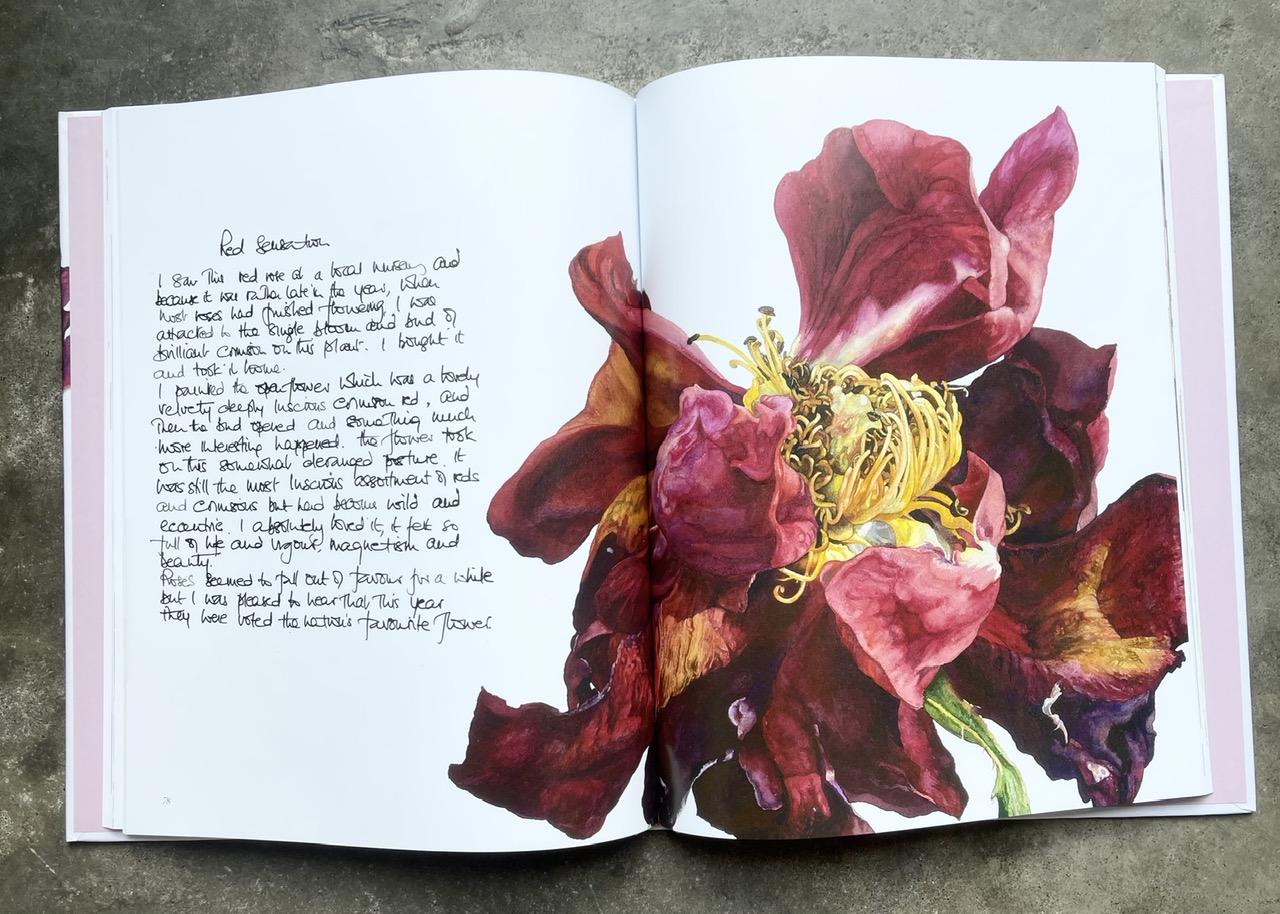 Red Sensation
I saw this red rose at a local nursery and
because it was rather late in the year, when
most roses had finished flowering, I was
attracted to the single bloom and bud of
brilliant crimson on this plant. I bought it
and took it home.
I painted the open flower which was a lovely
velvety deeply luscious crimson red, and
then the bud opened and something much
more interesting happened. The flower took
on this somewhat deranged posture. It
was still the most luscious assortment of reds
and crimsons but had become wild and
eccentric. I absolutely loved it, it felt so
full of life and vigour, magnetism and
beauty.
Roses seemed to fall out of favour for a while
but I was pleased to hear that this year
they were voted the nation's favourite flower
78